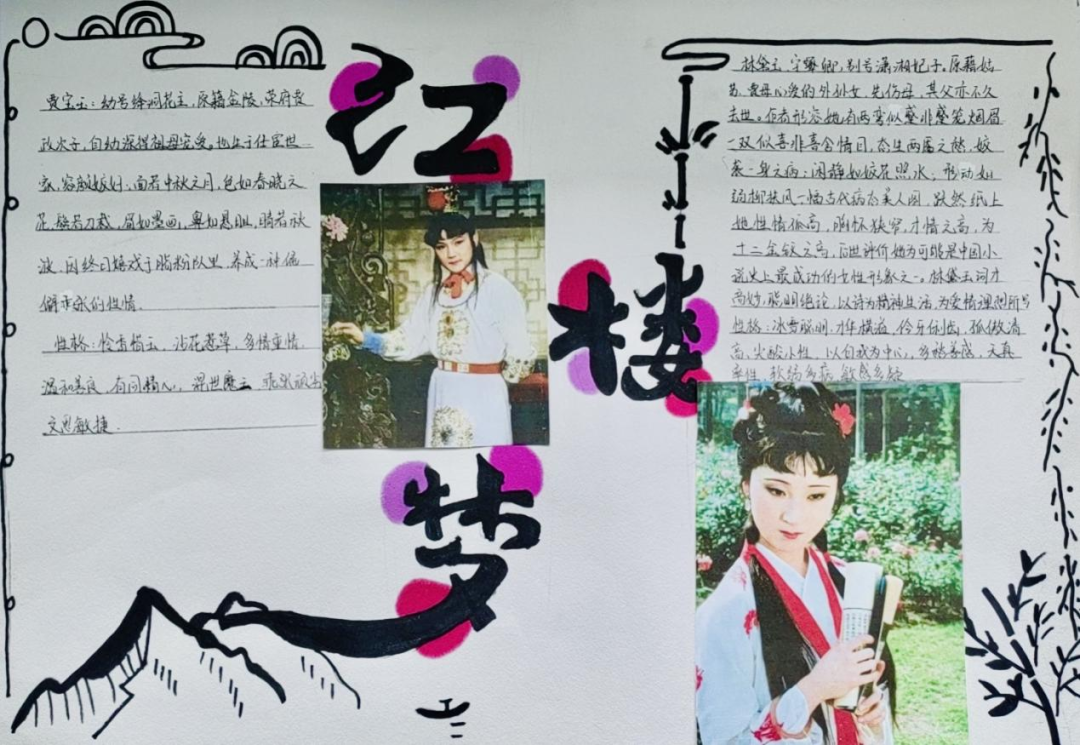 贾宝玉：幼号绛洞花主，原籍金陵，荣府贾
政次子，自幼深得祖母宠爱。他生于仕宦世
家，容貌姣好：面若中秋之月，色如春晓之
花，鬓若刀裁，眉如墨画，鼻如悬胆，睛若秋
波，因终日嬉戏于脂粉队里，养成一种偏
僻乖戾的性情
性格：怜香惜玉，沾花惹草，多情重情
温和善良，有同情心，混世魔王
文思敏捷.
红
楼
梦
林黛玉，字颦卿，别号潇湘妃子。原籍姑
苏，贾母心爱的外孙女，先伤母，其父亦不久
去世。作者形容她有两弯似蹙非蹙笼烟眉
一双似喜非喜含情目，态生两靥之愁，娇
袭一身之病；闲静如姣花照水；行动如
弱柳扶风一幅古代病态美人图，跃然纸上
她性情孤高，胸怀狭窄，才情之高，为
十二金钗之高，后世评价她为可能是中国小
说史上最成功的女性形象之一。林黛玉词才
高妙，聪明绝论，以诗为精神生活，为爱情理想所
性格：冰雪聪明，才华横溢，伶牙俐齿，孤傲清
高，尖酸小性，以自我为中心，多愁善感，天真
率性，软弱多病，敏感多疑